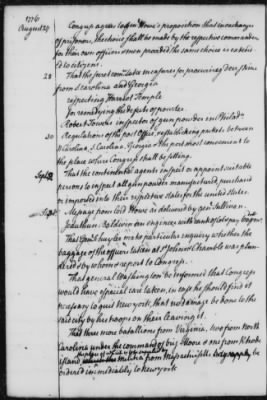 1776
August 24 Congress agrees to Gen Howe's proposition that in exchange
of prisoners, the choice shall be made by the respective commanders
for their own officers & men provided the same choice is extended
to citizens.
28 That the secret committee measures for procuring deer skins
from S. carolina and Georgia
respecting Harriot Temple
for remedying the defects of powder.
Robert Towers inspector of gun powder in Philada
30 Regulations of the post Office, establishing packets between
N. Carolina, S. Carolina, Georgia & the port most convenient to
the place where Congress shall be sitting.
Septr 2 That the continental agents inspect or appoint suitable
persons to inspect all gun powder manufactured, purchased
or imported into their respective states for the united states.
3 Message from lord Howe as delivered by genl Sullivan.
Jeduthun Baldwin an engineer with rank of colo pay 60 dollars
That Commissioners make particular enquiry whether the
baggage of the officers taken at St Johns & Chamblé was plun-
dered & by whom & report to Congress.
That general Washington be informed that Congress
would have especial care taken, in case he should find it
necessary to quit new york, that no damage be done to the
said city by his troops on their leaving it.
That three more batallions from Virginia, two from North
Carolina under the command of brig Moore & one from Rhode
island the militia from Massachusetts be
ordered immediately to New york